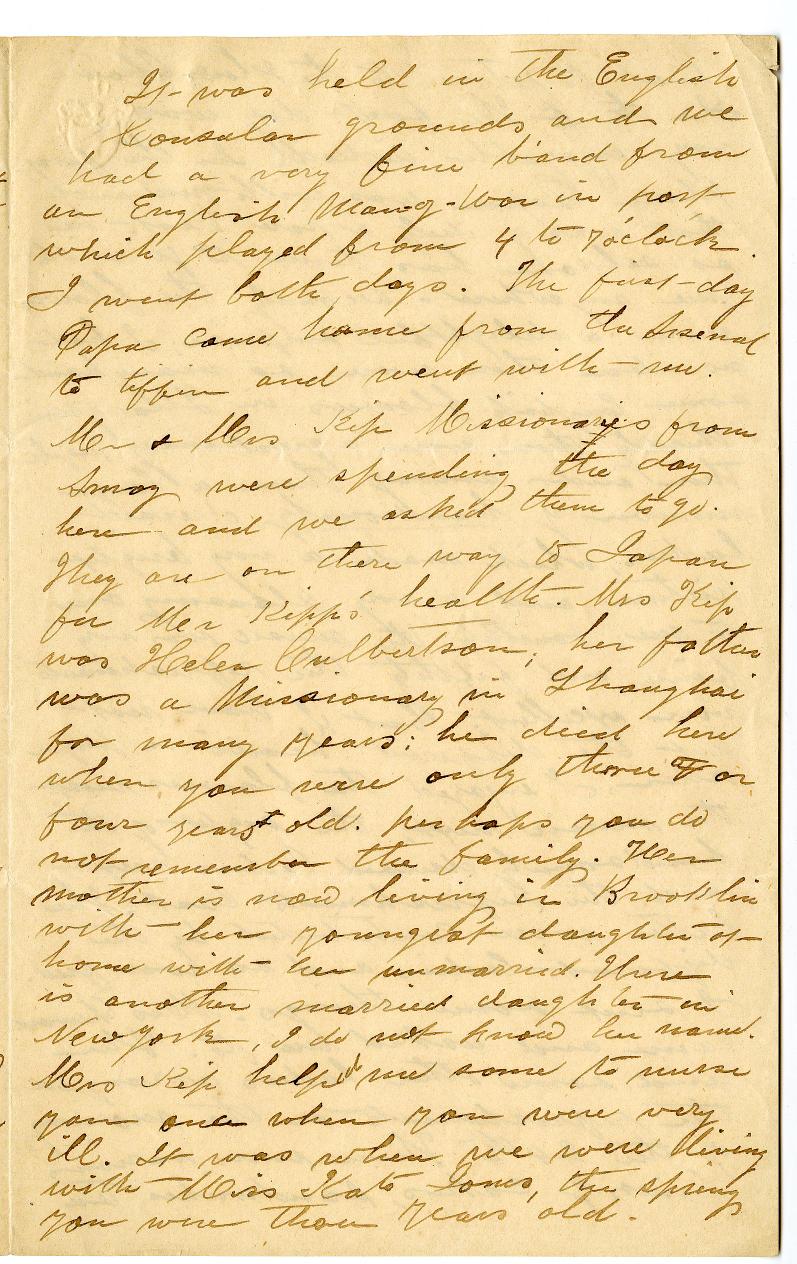 It was held in the English
Consular grounds and we
had a very fine band from
an English Man-of-War in port
which played from 4 to 7 o'clock.
I went both days. The first day
Papa came home from the Arsenal
to tiffin and went with me.
Mr & Mrs Kip Missionaries from
Amoy were spending the day
here and we asked them to go.
They are on there way to Japan
for Mr Kipp's health. Mrs Kip
was Helen Culbertson; her father
was a Missionary in Shanghai
for many years; he died here
when you were only three or
four years old. perhaps you do
not remember the family. Her
mother is now living in Brooklin
with her youngest daughter at
home with her unmarried. There
is another married daughter in
New York, I do not know her name.
Mrs Kip helped me some to nurse
you once when you were very
ill. It was when we were living
with Miss Kate Jones, the spring
you were three years old.